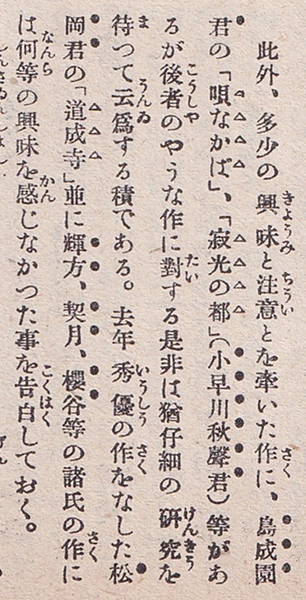 此外、多少の興味と注意とを牽いた作に、島成園
君の「唄なかば」、「寂光の都」(小早川秋聲君)等があ
るが後者のやうな作に對する是非は猶仔細の硏究を
待つて云爲する積である。去年秀優の作をなした松
岡君の「道成寺」並に輝方、契月、櫻谷等の諸氏の作に
は何等の興味を感じなかつた事を告白しておく。